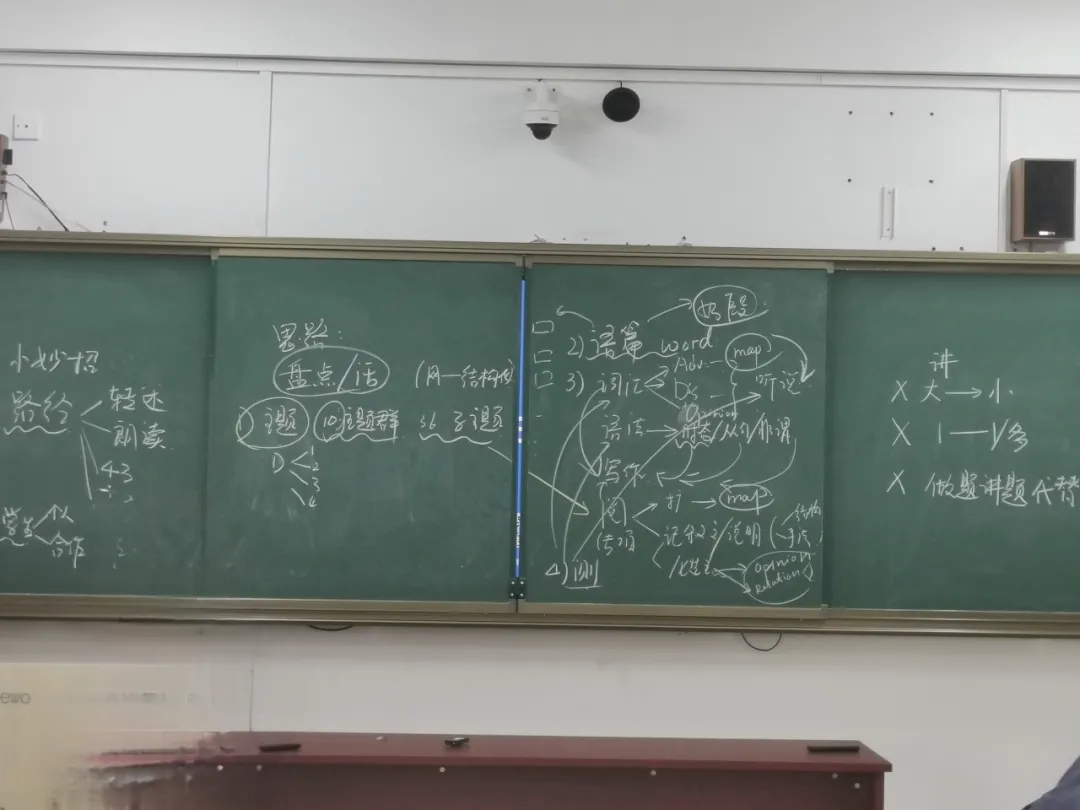 小妙招
路径
轻述
朗读
43
学生
个人
合作
思路:
盘点/活
(网一结构化
1) 主题 10主题群 36 子主题
D 1
2
3
4
2) 语篇 word
map
3) 词汇
Adv.
Dis
听说
语法
opinion
时态/从句/非谓
写作
阅
专项
扩 → map
说明
结构
手法
4) 测
opinion
Relation
讲
X 大 → 小
X 1 — 1/多
X 做题讲题代替
ewo